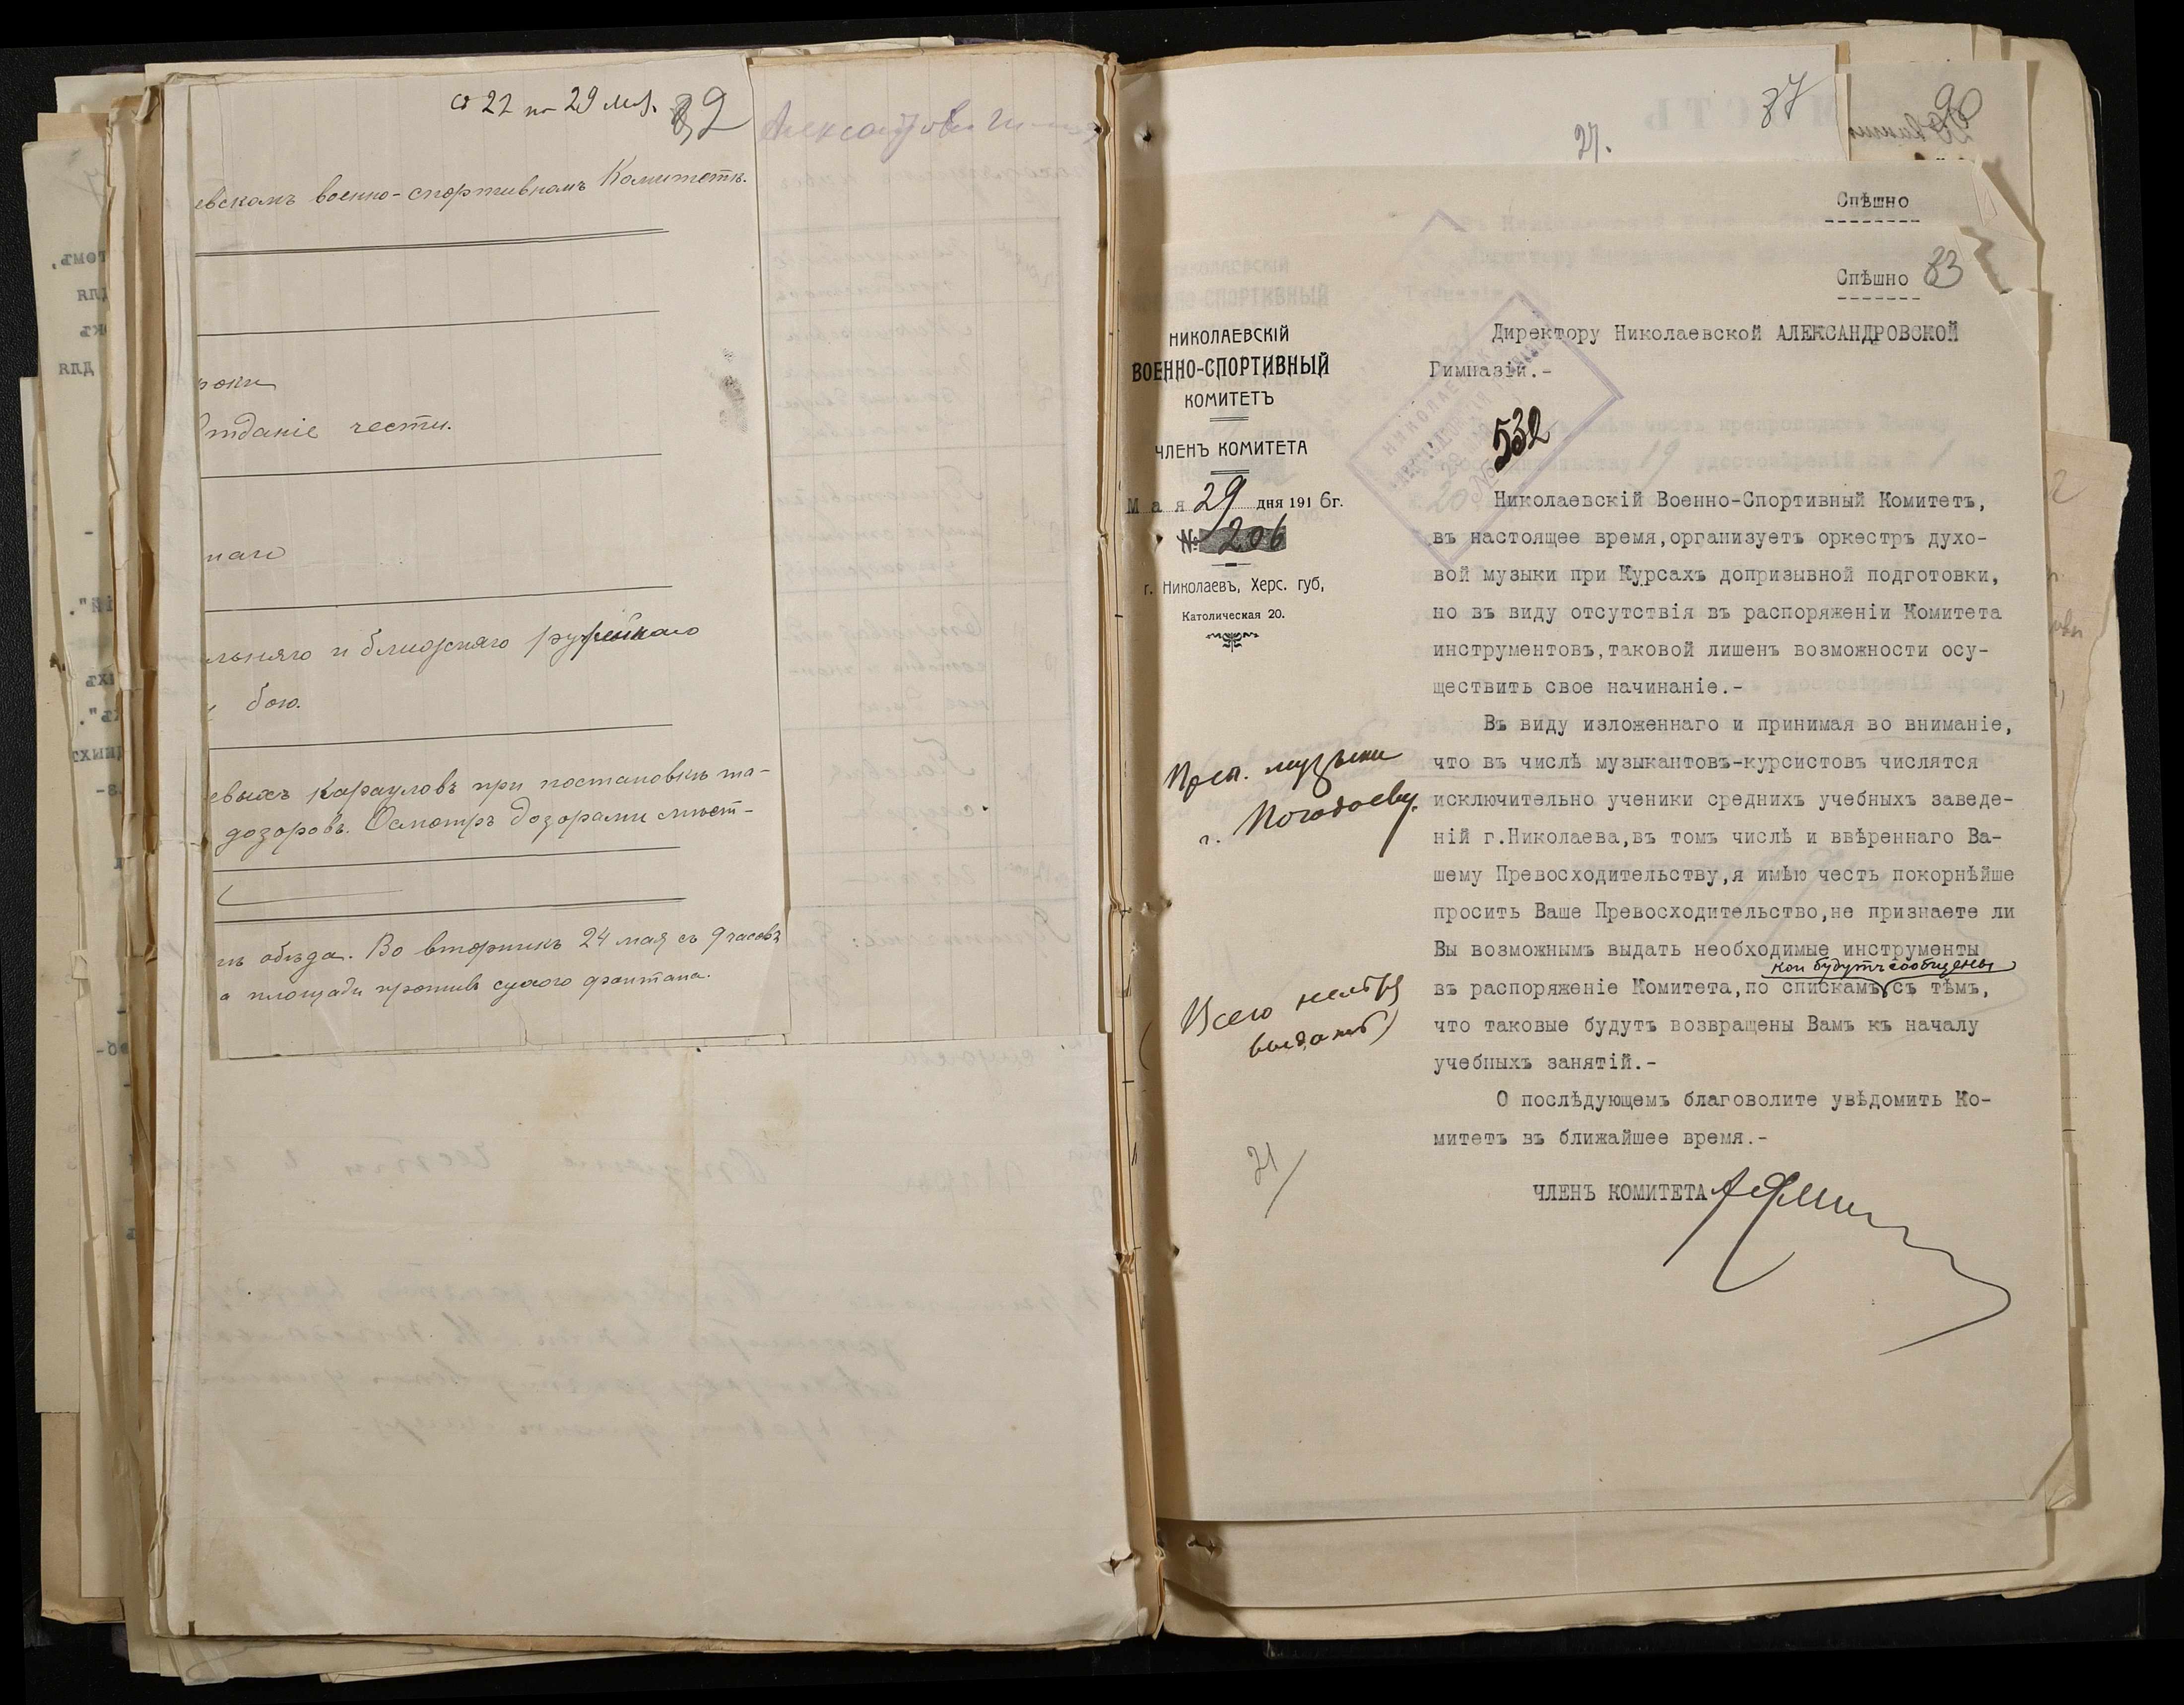 съ 22 по 29 мая.
82
евскомъ военно-спортивномъ Комитетѣ.
Отданіе чести.
льняго и ближняго ружейнаго
бою.
евыхъ карауловъ при постановкѣ
дозоровъ. Осмотръ дозорами мѣст-
обѣда. Во вторникъ 24 мая съ 9 часовъ
а площади противъ сухого фонтана.
87
27.
90
Спѣшно
Спѣшно 83
НИКОЛАЕВСКІЙ
ВОЕННО-СПОРТИВНЫЙ
КОМИТЕТЪ
ЧЛЕНЪ КОМИТЕТА
Мая 29 дня 1916г.
№ 206
г. Николаевъ, Херс. губ,
Католическая 20.
Директору Николаевской АЛЕКСАНДРОВСКОЙ
Гимназій.-
532
Николаевскій Военно-Спортивный Комитетъ,
въ настоящее время,организуетъ оркестръ духо-
вой музыки при Курсахъ допризывной подготовки,
но въ виду отсутствія въ распоряженіи Комитета
инструментовъ,таковой лишенъ возможности осу-
ществить свое начинаніе.-
Въ виду изложеннаго и принимая во вниманіе,
что въ числѣ музыкантовъ-курсистовъ числятся
исключительно ученики среднихъ учебныхъ заведе-
ній г.Николаева,въ томъ числѣ и ввѣреннаго Ва-
шему Превосходительству,я имѣю честь покорнѣйше
просить Ваше Превосходительство,не признаете ли
Вы возможнымъ выдать необходимые инструменты
кои будутъ сообщены
въ распоряженіе Комитета,по спискамъ съ тѣмъ,
что таковые будутъ возвращены Вамъ къ началу
учебныхъ занятій.-
О послѣдующемъ благоволите увѣдомить Ко-
митетъ въ ближайшее время.-
ЧЛЕНЪ КОМИТЕТА
Преп. музыки
г. Погодаеву.
Всего
выдать
21/